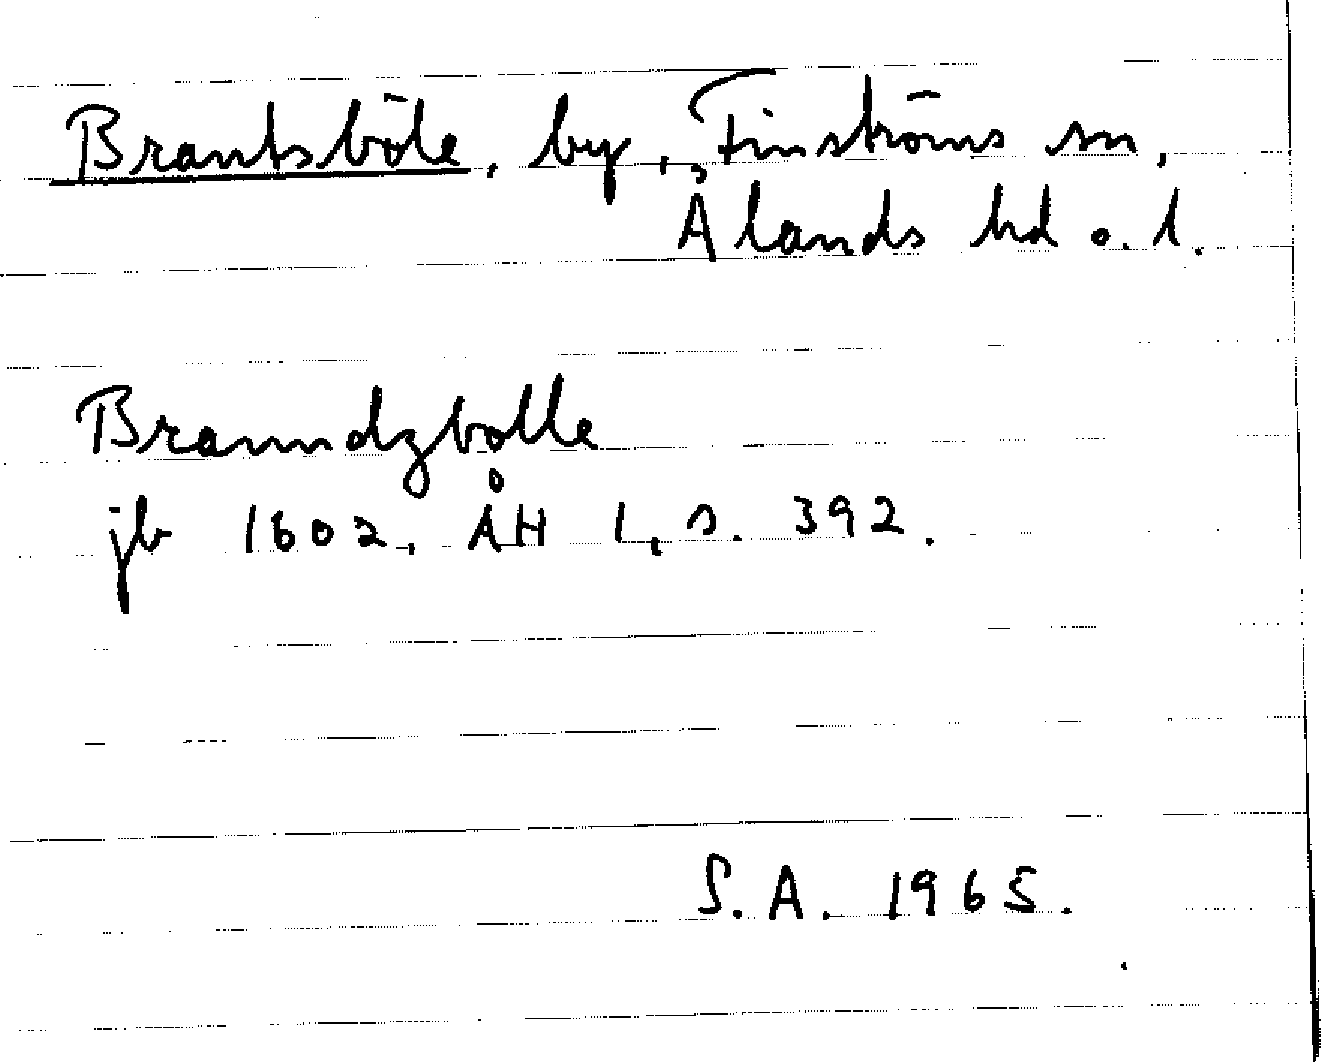 Brantsböle, by, Finströms sn,
Ålands hd o. l.
Branndzbolle
jb 1602, ÅH I, s. 392.
S.A. 1965.